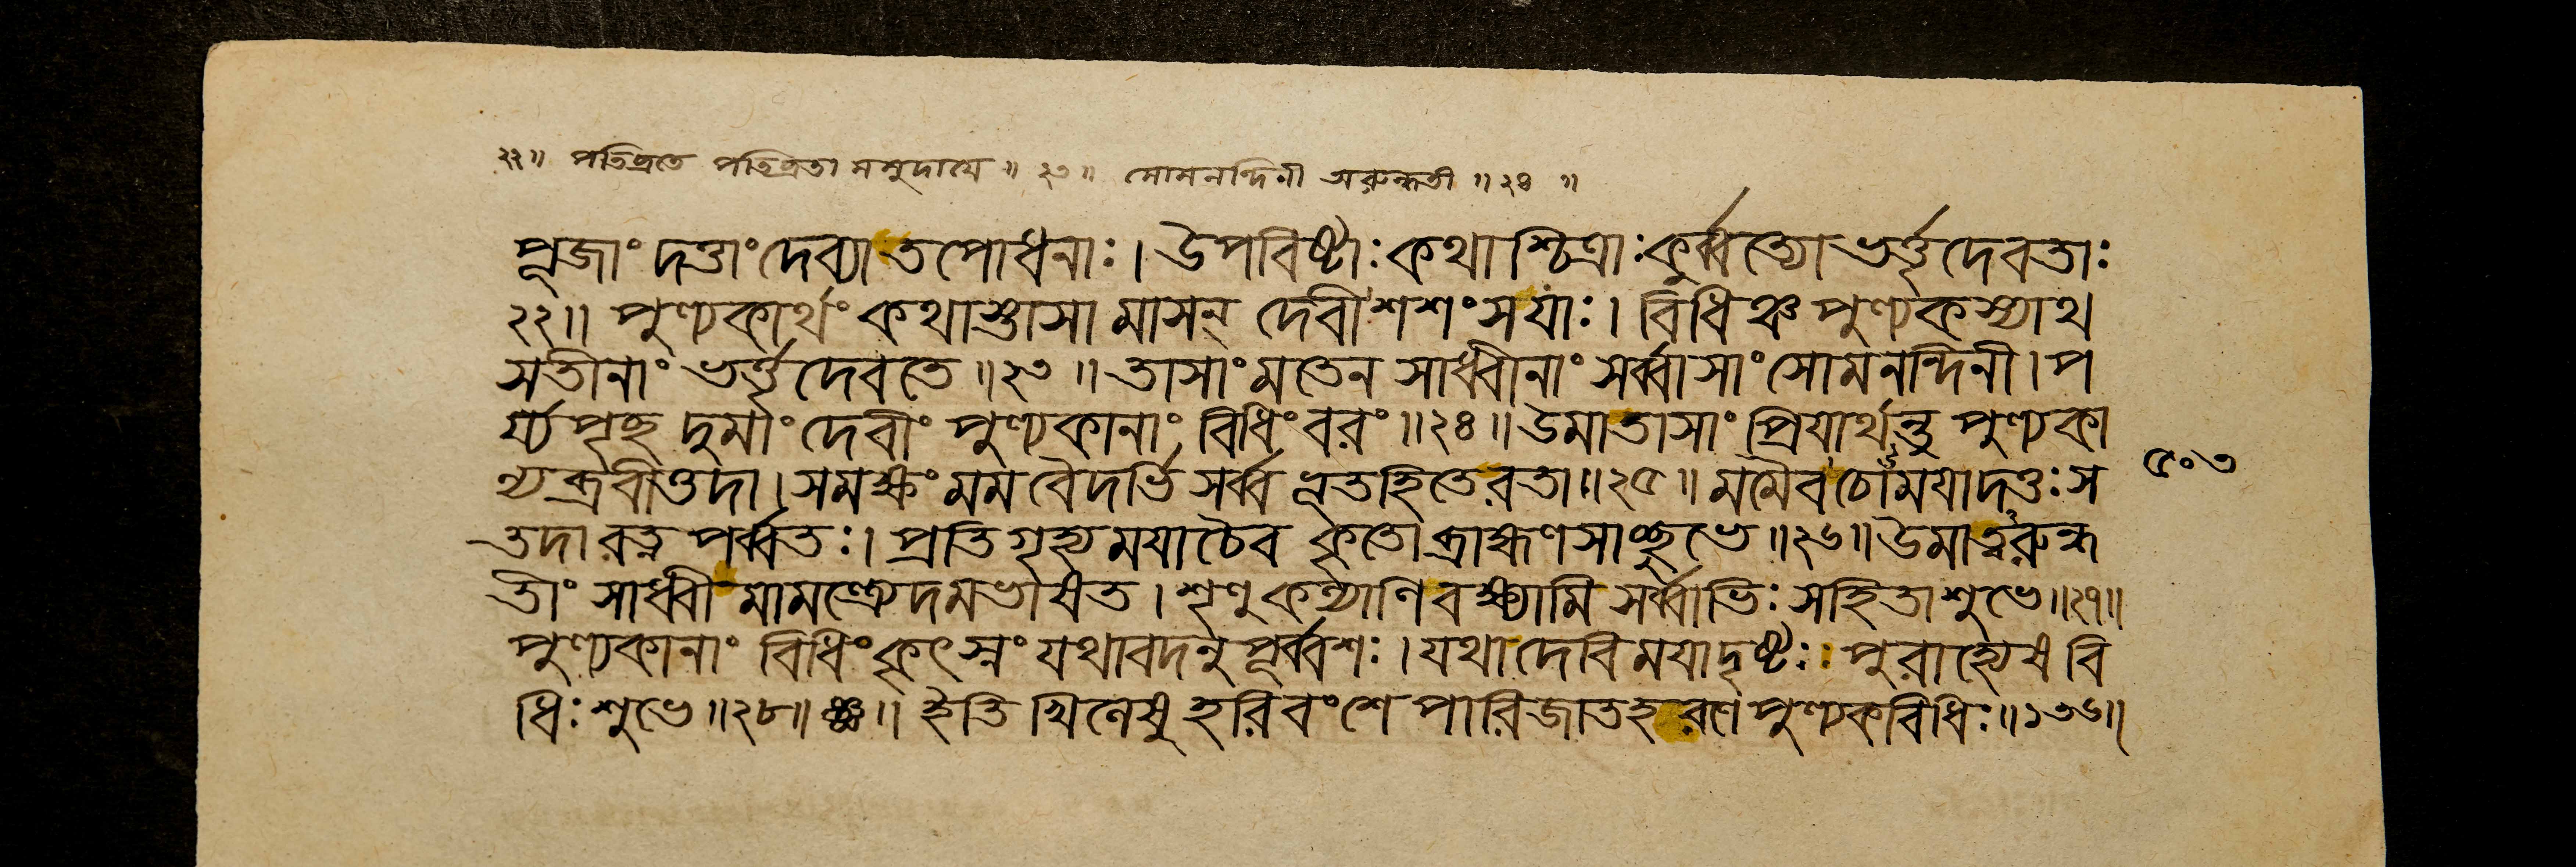 ২২॥ পতিব্রতে পতিব্রতা মনুদাম্যে ॥ ২৩॥ সোমনন্দিনী অরুন্ধতী ॥২৪ ॥
পূজাং দত্তাং দেব্যা তপোধনাঃ। উপবিষ্টাঃ কথাশ্চিত্রাঃ কুর্ব্বত্যো ভর্ত্তৃদেবতাঃ
২২॥ পুণ্যকার্থং কথাস্তাসা মাসন্ দেবী শশংস যাঃ। বিধিঞ্চ পুণ্যকস্যাথ
সতীনাং ভর্ত্তৃদেবতে ॥২৩॥ তাসাং মতেন সাধ্বীনাং সর্ব্বাসাং সোমনন্দিনী। প
র্য্যপৃচ্ছ দুমাং দেবীং পুণ্যকানাং বিধিং বরং ॥২৪॥ উমা তাসাং প্রিয়ার্থন্তু পুণ্যকা
ন্যব্রবীত্তদা। সমক্ষং মম বৈদর্ভি সর্ব্বভূতহিতে রতা॥২৫॥ মমৈব চোমযা দত্তঃ স
৫০৩
তদা রত্নপর্ব্বতঃ। প্রতিগৃহ্য ময়া চৈব কৃতো ব্রাহ্মণসাচ্ছুভে ॥২৬॥ উমাত্বরুন্ধ
তীং সাধ্বী মামন্ত্র্যেদমভাষত। শৃণু কল্যাণি বক্ষ্যামি সর্ব্বাভিঃ সহিতা শুভে॥২৭॥
পুণ্যকানাং বিধিং কৃৎস্নং যথাবদনুপূর্ব্বশঃ। যথা দেবি ময়া দৃষ্টঃ পুরাহ্যেষ বি
ধিঃ শুভে॥২৮॥ ঞ্ছ॥ ইতি খিলেষু হরিবংশে পারিজাতহরণে পুণ্যকবিধিঃ॥১৩৬॥